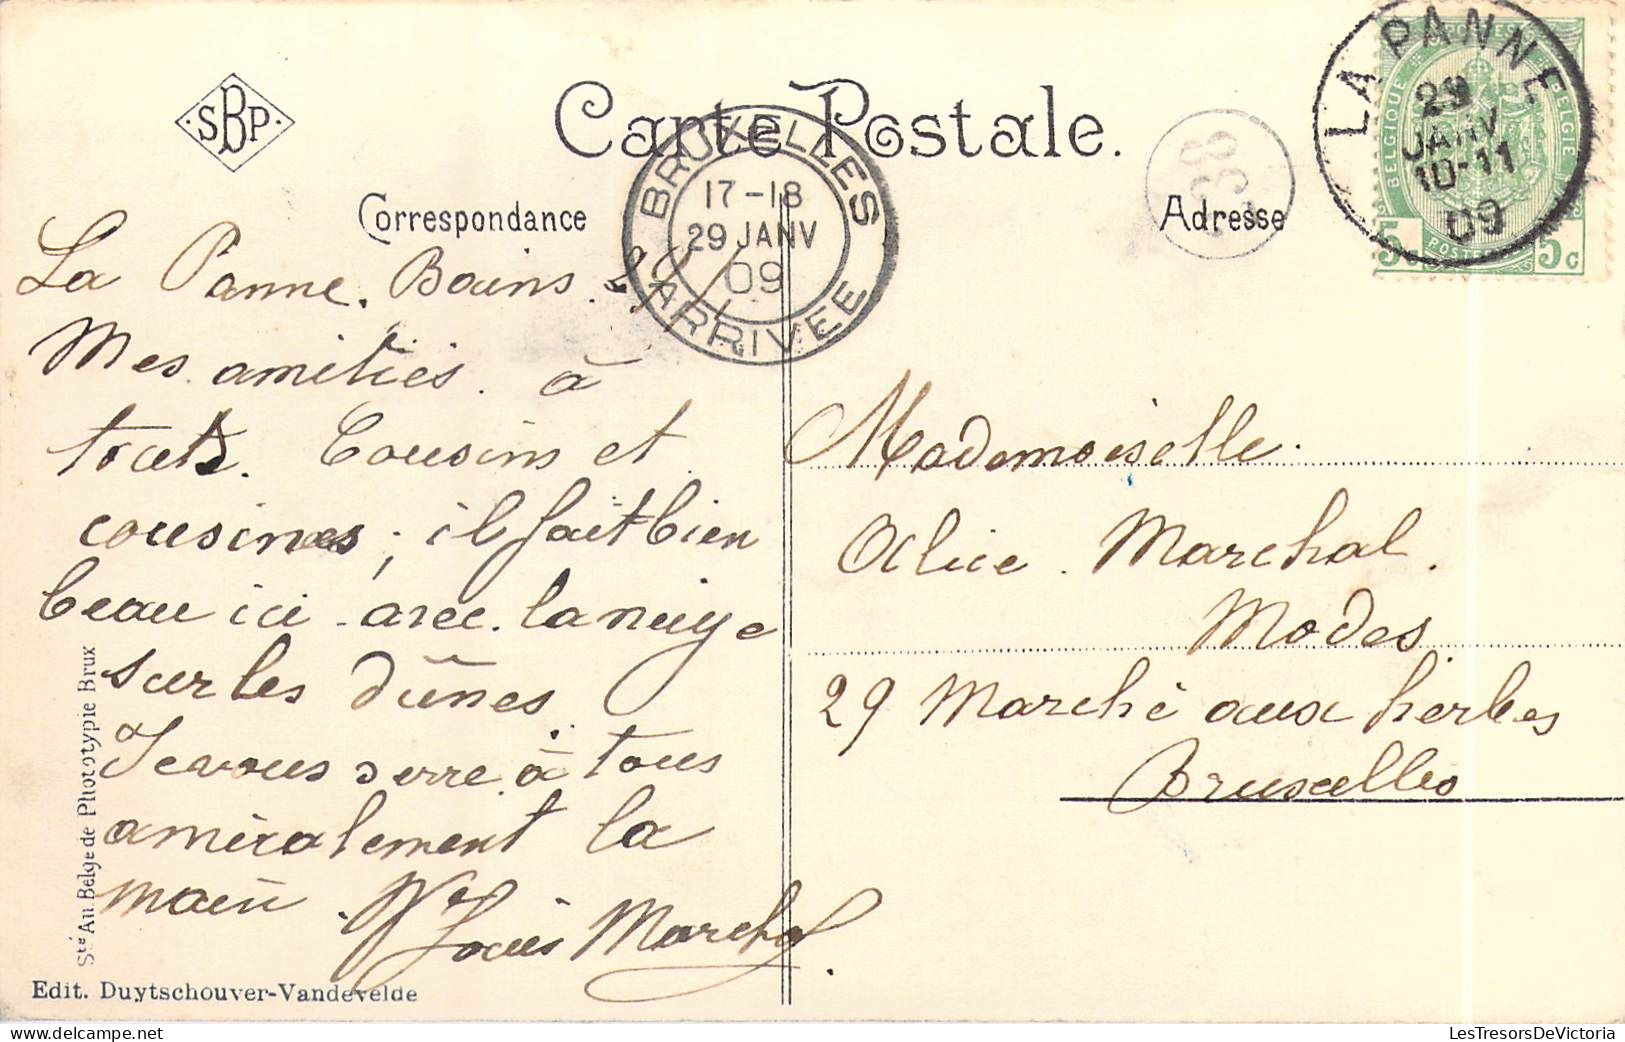 SBP
Carte Postale.
Correspondance
Adresse
BRUXELLES
17-18
29 JANV
09
ARRIVEE
LA PANNE
29
JANV
10-11
09
POSTES
BELGIQUE
BELGIE
POST
5 5c
La Panne. Bains.
Mes amitiés. à
touts. Cousins et
cousines; il fait bien
beau ici avec. la neige
sur les dûnes.
Je vous serre à tous
amicalement la
main.
Louis Marchal.
Mademoiselle.
Alice. Marchal.
Modes
29 Marché aux herbes
Bruxelles
Sté An Belge de Phototypie Brux
Edit. Duytschouver-Vandevelde
LesTresorsDeVictoria